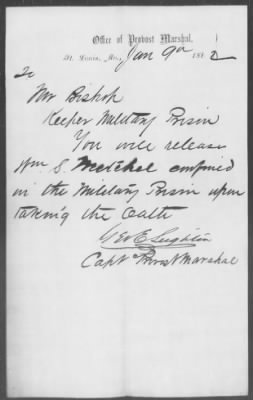 Office of Provost Marshal,
St. Louis, Mo., Jan 9th 1862
To
Mr Bishop
Keeper Military Prison
You will release
Wm S. Mitchel confined
in the Military Prison upon
taking the Oath
Geo E Leighton
Capt & Provost Marshal